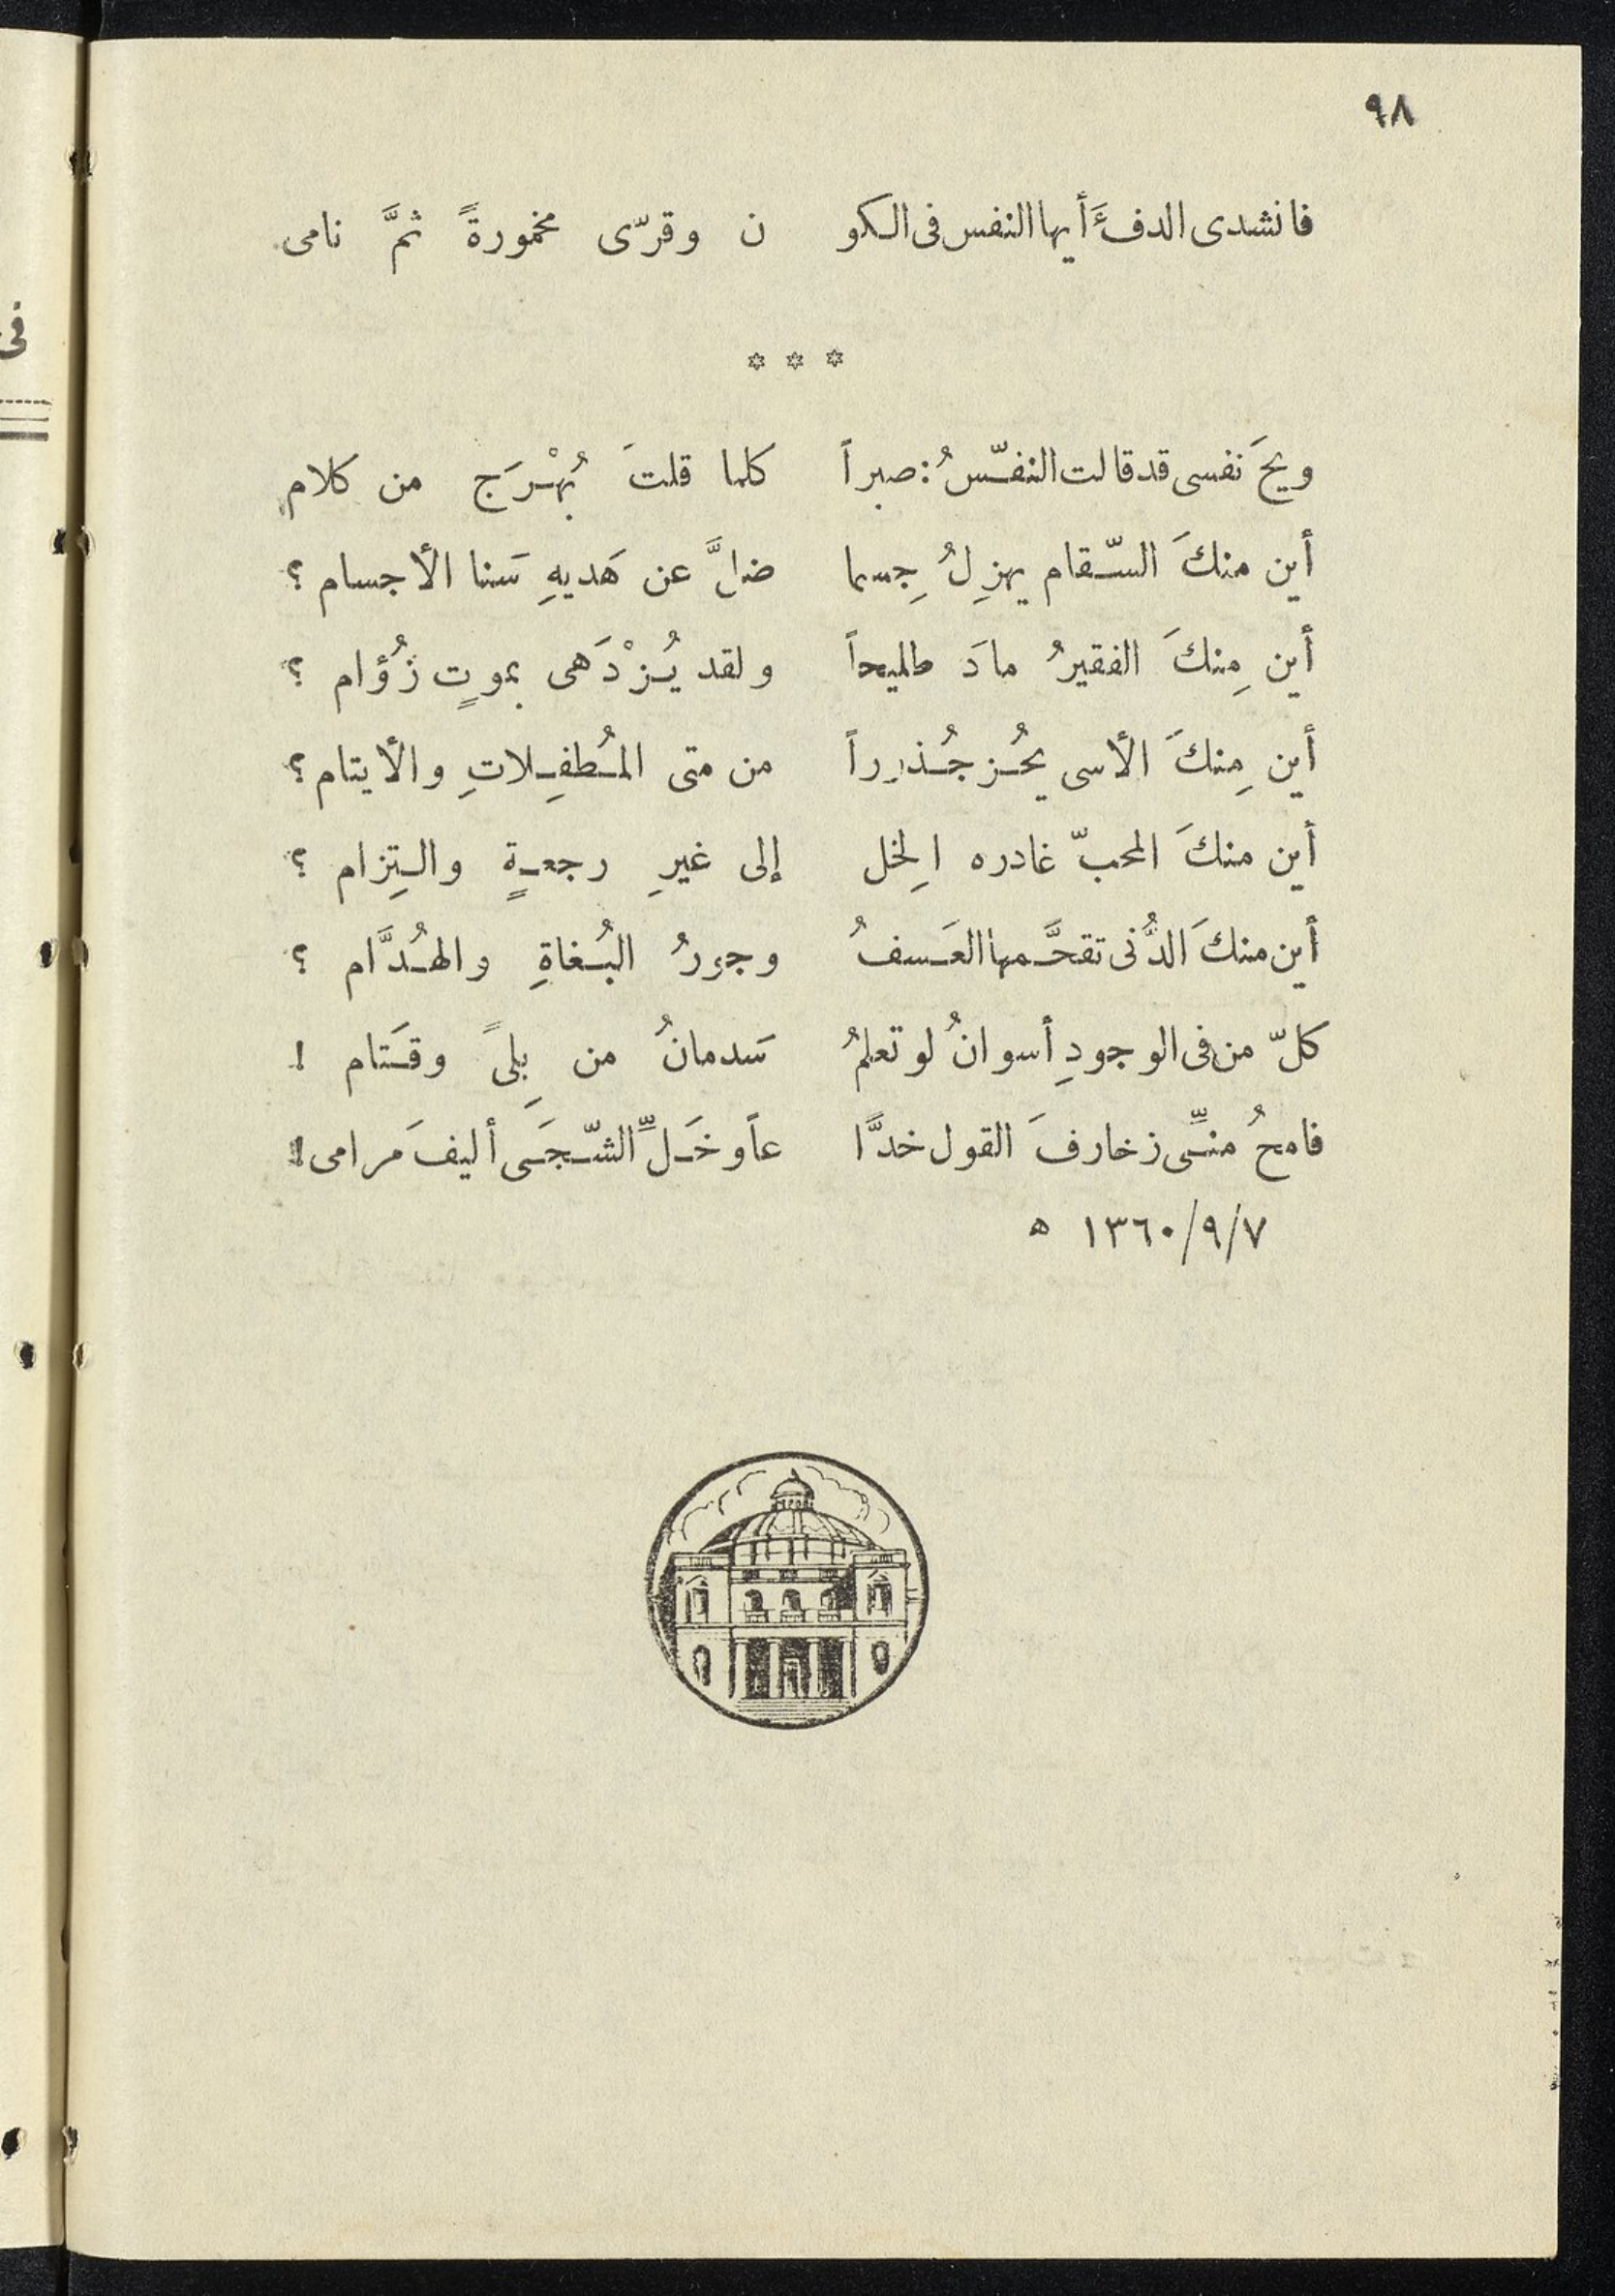 ٩٨
فانشدى الدفءَ أيها النفس فى الكو ن وقرّى مخمورةً ثمَّ نامى
* * *
ويحَ نفسى قد قالت النفّسُ : صبراً كلما قلتَ بُهْرَج من كلام
أين منكَ السّقام يهزِلُ جِسما ضلَّ عن هَديهِ سَنا الأجسام ؟
أين مِنكَ الفقيرُ مادَ طليحاً ولقد يُزْدَهى بموتٍ زُؤام ؟
أين مِنكَ الأسى يحُز جُذوراً من متى المُطفِلاتِ والأيتام ؟
أين منكَ المحبّ غادره الِخل إلى غيرِ رجعةٍ والتِزام ؟
أين منكَ الدُّنى تقحَّمها العَسفُ وجورُ البُغاةِ والهُدَّام ؟
كلّ من فى الوجودِ أسوانُ لو تعلمُ سَدمانُ من بِلىً وقَتام !
فامحُ منِّى زخارفَ القول خدَّا عاً وخَلِّ الشّجَى أليفَ مَرامى !
٧/٩/١٣٦٠ ه
فى